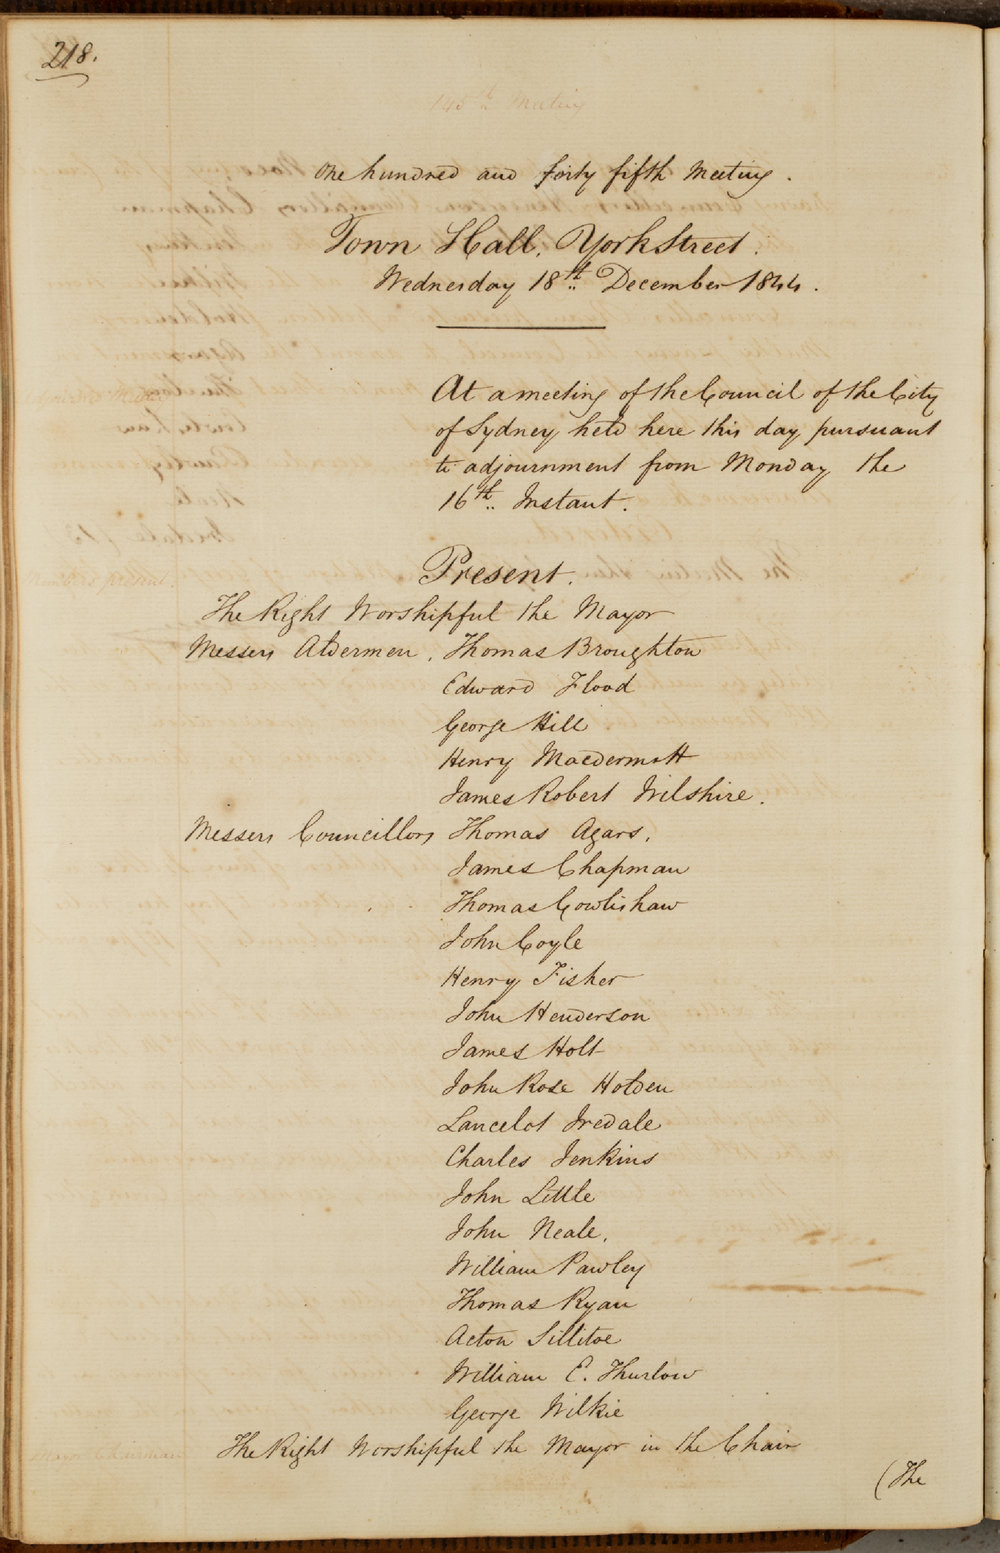 218.
145th Meeting
One hundred and forty fifth Meeting.
Town Hall, York Street.
Wednesday 18th December 1844.
At a meeting of the Council of the City
of Sydney held here this day pursuant
to adjournment from Monday the
16th Instant.
Present.
The Right Worshipful the Mayor
Messers Aldermen, Thomas Broughton
Edward Flood
George Hill
Henry Macdermott
James Robert Wilshire.
Messers Councillors Thomas Agars,
James Chapman
Thomas Cowlishaw
John Coyle
Henry Fisher
John Henderson
James Holt
John Rose Holden
Lancelot Iredale
Charles Jenkins
John Little
John Neale.
William Pawley
Thomas Ryan
Acton Sillitoe
William E. Thurlow
George Wilkie
The Right Worshipful the Mayor in the Chair
(The